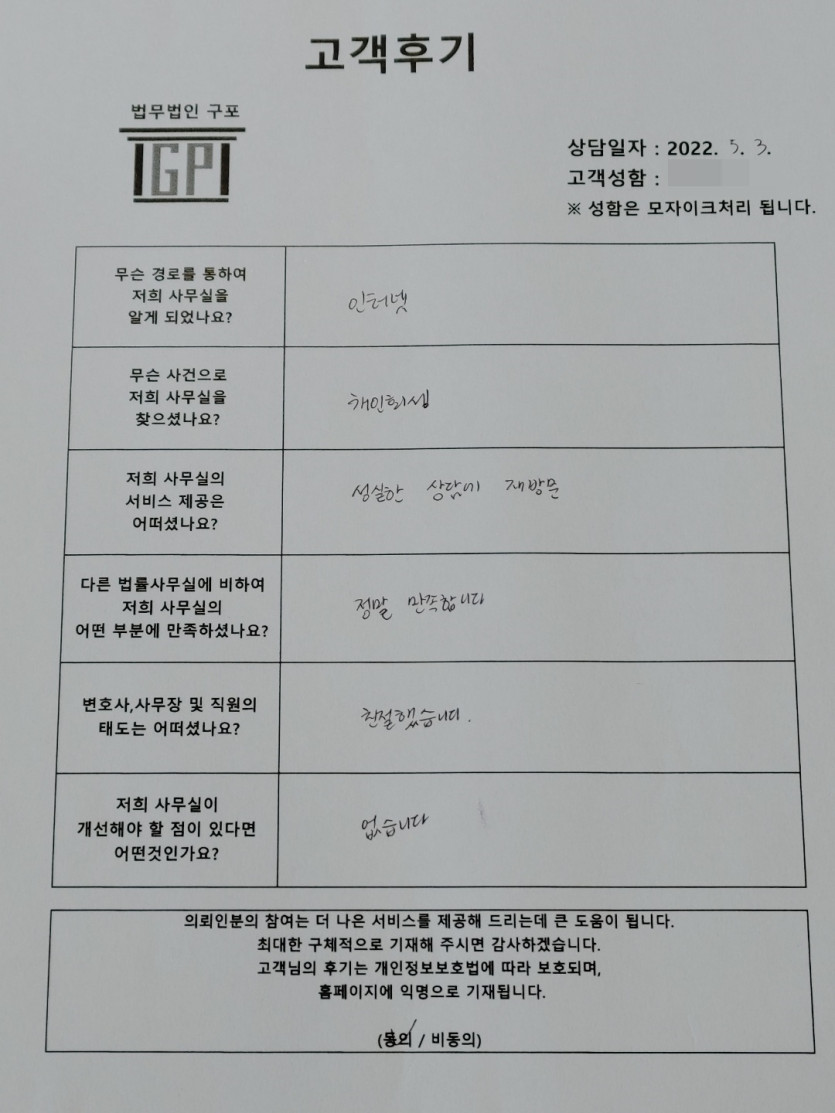 고객후기
법무법인 구포
IGPI
상담일자 : 2022. 5. 3.
고객성함 :
※ 성함은 모자이크처리 됩니다.
무슨 경로를 통하여
저희 사무실을
알게 되었나요?
인터넷
무슨 사건으로
저희 사무실을
찾으셨나요?
개인회생
저희 사무실의
서비스 제공은
어떠셨나요?
성실한 상담에 재방문
다른 법률사무실에 비하여
저희 사무실의
어떤 부분에 만족하셨나요?
정말 만족합니다
변호사,사무장 및 직원의
태도는 어떠셨나요?
친절했습니다.
저희 사무실이
개선해야 할 점이 있다면
어떤것인가요?
없습니다
의뢰인분의 참여는 더 나은 서비스를 제공해 드리는데 큰 도움이 됩니다.
최대한 구체적으로 기재해 주시면 감사하겠습니다.
고객님의 후기는 개인정보보호법에 따라 보호되며,
홈페이지에 익명으로 기재됩니다.
(동의 / 비동의)